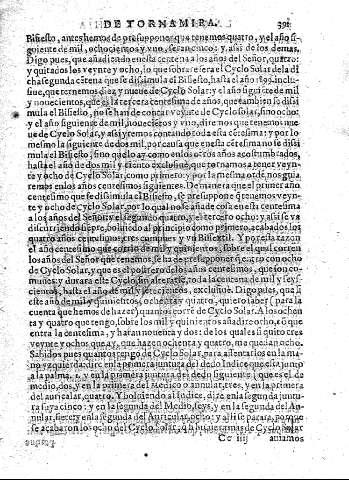 DE TORNAMIRA. 391
Bisiesto, antes hemos de presupponer que tenemos quatro, y el año si-
guiente de mil, ochocientos y vno, seran cinco: y assi de los demas.
Digo pues, que añadiendo en esta centena a los años del Señor, quatro:
y quitados los veynte y ocho, lo que sobrare sera el Cyclo Solar dela di-
cha segunda centena que se dissimula el Bisiesto, hasta el año 1899. inclu-
siue, que ternemos diez y nueue de Cyclo Solar: y el año siguiente de mil
y nouecientos, que es la tercera centesima de años, que tambien se dissi
mula el Bisiesto, no se han de contar veynte de Cyclo solar, sino ocho:
y el año siguiente de mil, nouecientos y vno, diremos que tenemos nue
ue de Cyclo Solar, y assi yremos contando toda esta cētesima: y por lo
mesmo la siguiente de dos mil, por causa que en esta cētesima no se dissi
mula el Bisiesto, sino que lo ay como en los otros años acostumbrados,
hasta el año de dos mil y ciento exclusiue, que tornamos a tener veyn
te y ocho de Cyclo Solar, como primero: y por la mesma orden segui
remos en los años centesimos siguientes. De manera que el primer año
centesimo que se dissimula el Bisiesto, se presuppone q̃ tenemos veyn-
te y ocho de Cyclo Solar, por lo qual no se añade cosa en esta centesima
a los años del Señor: y el segundo quatro, y el tercero ocho: y assi se va
discurriendo siẽpre, boluiendo al principio como primero, acabados los
quatro años centesimos tres comunes y vn Bisextil. Y por esta razon
el año centesimo que corrio de mil y quinientos, sobre el qual corren
los años del Señor que tenemos, se ha de presupponer q̃ entro con ocho
de Cyclo Solar, y que es el postrero de los años centesimos, que son co-
munes: y durara este Cyclo sin alterarse, toda la centena de mil y seys-
cientos, hasta el año de mil y setecientos, exclusiue. Digo pues, que si
este año de mil y quinientos, ochenta y quatro, quiero saber (para la
cuenta que hemos de hazer) quantos corrē de Cyclo Solar. A los ochen
ta y quatro que tengo, sobre los mil y quinientos añadire ocho, cō que
entra la centesima, y haran nouenta y dos: de los quales si quito tres
veynte y ochos que ay, que hazen ochenta y quatro, me quedan ocho.
Sabidos pues quantos tengo de Cyclo Solar, para assentarlos en la ma-
no yzquierda: dire en la primera juntura del dedo Indice que esta junto
a la palma, 1. y en la primera juntura del dedo siguiente, que es el de
medio, dos, y en la primera del Medico o annular, tres, y en la primera
del auricular, quatro. Y boluiendo al Indice, dire en la segunda juntu-
ra suya cinco: y en la segunda del Medio, seys, y en la segunda del An-
nular, siete: y en la segunda del Auricular, ocho: y alli se parara, porque
se acabaron los ocho del Cyclo Solar.
Cc iiij auiamos